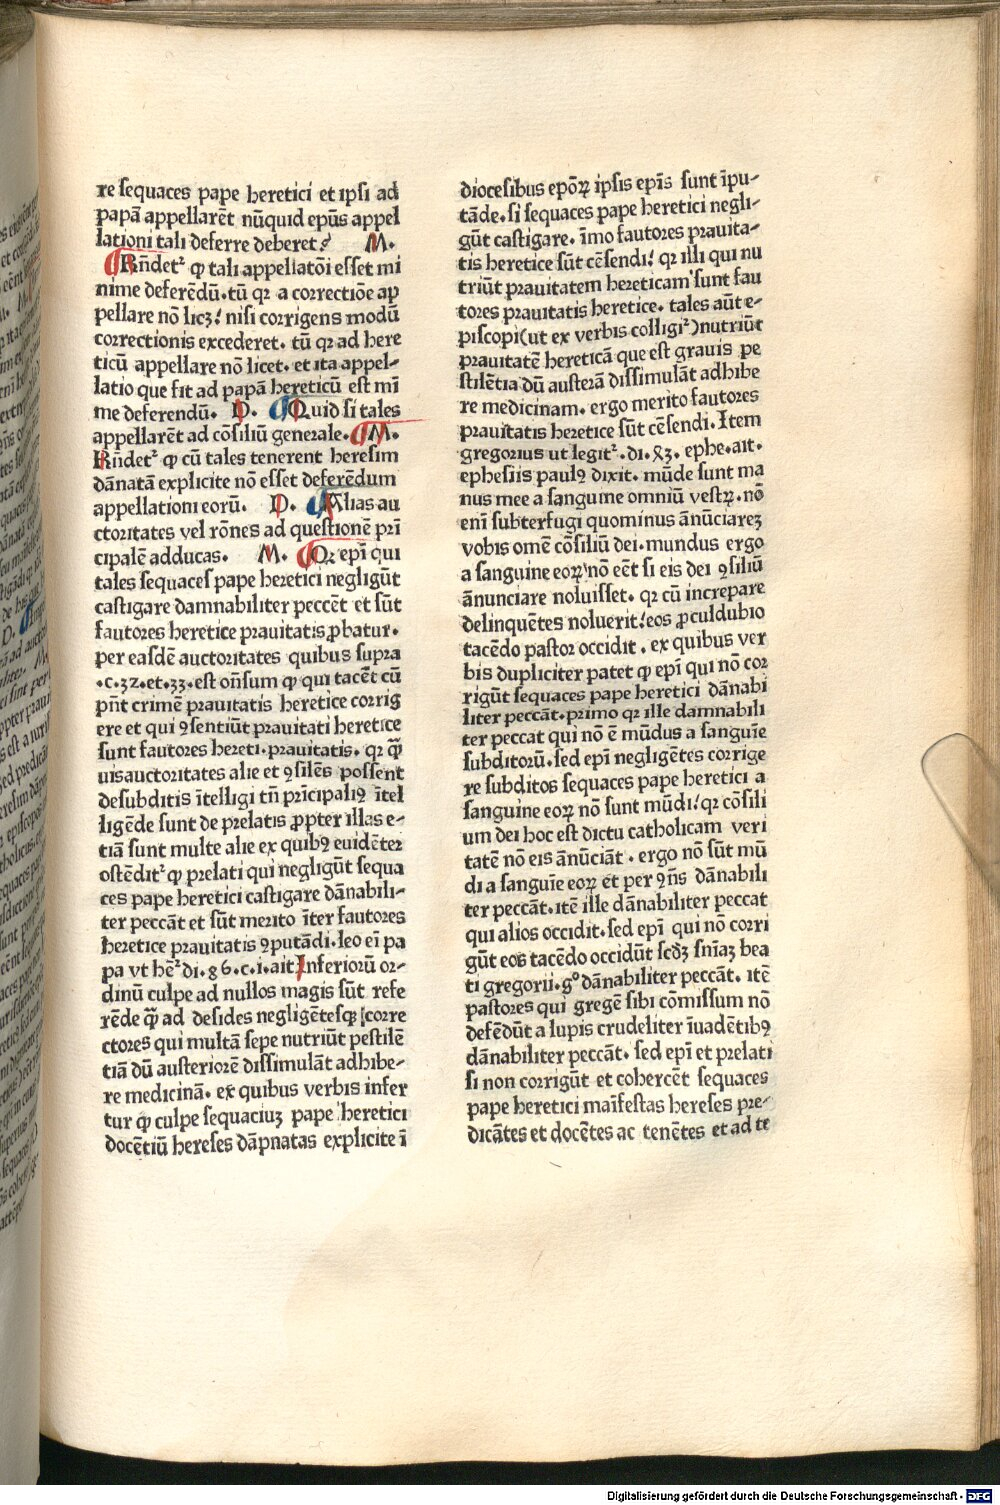 re sequaces pape heretici et ipsi ad
papā appellarēt nūquid ep̄us appel
lationi tali deferre deberet? M.
Rn̄det² ꝙ tali appellatōi esset mi
nime deferēdū. tū qꝛ a correctiōe ap
pellare nō licꝫ! nisi corrigens modū
correctionis excederet. tū qꝛ ad here
ticū appellare nō licet. et ita appel-
latio que fit ad papā hereticū est mī
me deferendū. D. Quid si tales
appellarēt ad cōsiliū generale. M.
Rn̄det² ꝙ cū tales tenerent heresim
dānatā explicite nō esset deferēdum
appellationi eorū. D. Alias au
ctoritates vel rōnes ad questionē prī
cipalē adducas. M. Qꝛ epī qui
tales sequaces pape heretici negligūt
castigare damnabiliter peccēt et sūt
fautores heretice prauitatis ꝓbatur.
per easdē auctoritates quibus supra
.c.32.et.33.est on̄sum ꝙ qui tacēt cū
pn̄t crimē prauitatis heretice corrig
ere et qui ꝯsentiūt prauitati heretice
sunt fautores hereti.prauitatis. qꝛ ꝙ̄
uis auctoritates alie et ꝯsilēs possent
de subditis ītelligi tn̄ prīcipaliꝰ ītel
ligēde sunt de prelatis ꝓpter illas e-
tiā sunt multe alie ex quibꝰ euidēter
ostēdit² ꝙ prelati qui negligūt sequa
ces pape heretici castigare dānabili-
ter peccāt et sūt merito īter fautores
heretice prauitatis ꝯputādi. leo eī pa
pa vt hē² di.86.c.i.ait Inferiorū or-
dinū culpe ad nullos magis sūt refe
rēde ꝙ̄ ad desides negligētesqꝫ [corre
ctores qui multā sepe nutriūt pestilē
tiā dū austeriorē dissimulāt adhibe-
re medicinā. ex quibus verbis infer
tur ꝙ culpe sequaciuꝫ pape heretici
docētiū hereses dāpnatas explicite ī
diocesibus epōꝝ ipsis epīs sunt īpu-
tāde. si sequaces pape heretici negli-
gūt castigare. īmo fautores prauita-
tis heretice sūt cēsendi! qꝛ illi qui nu
triūt prauitatem hereticam sunt fau
tores prauitatis heretice. tales aūt e-
piscopi(ut ex verbis colligi²)nutriūt
prauitatē hereticā que est grauis pe
stilētia dū austerā dissimulāt adhibe
re medicinam. ergo merito fautores
prauitatis heretice sūt cēsendi. Item
gregorius ut legit². di. ephe. ait.
ephesiis paulꝰ dixit. mūde sunt ma
nus mee a sanguine omniū vestꝝ. nō
enī subterfugi quominus ānūciareꝫ
vobis omē cōsiliū dei. mundus ergo
a sanguine eoꝝ nō eēt si eis dei ꝯsiliū
ānunciare noluisset. qꝛ cū increpare
delinquētes noluerit! eos ꝓculdubio
tacēdo pastor occidit. ex quibus ver
bis dupliciter patet ꝙ epī qui nō cor
rigūt sequaces pape heretici dānabi
liter peccāt. primo qꝛ ille damnabili
ter peccat qui nō ē mūdus a sanguīe
subditorū. sed epī negligētes corrige
re subditos sequaces pape heretici a
sanguine eoꝝ nō sunt mūdi! qꝛ cōsili
um dei hoc est dictu catholicam veri
tatē nō eis ānūciāt. ergo nō sūt mū
di a sanguīe eoꝝ et per ꝯn̄s dānabili
ter peccāt. itē ille dānabiliter peccat
qui alios occidit. sed epī qui nō corri
gūt eos tacēdo occidūt scdꝫ sn̄iaꝫ bea
ti gregorii. g° dānabiliter peccāt. itē
pastores qui gregē sibi cōmissum nō
defēdūt a lupis crudeliter īuadētibꝰ
dānabiliter peccāt. sed epī et prelati
si non corrigūt et cohercēt sequaces
pape heretici maīfestas hereses pre-
dicātes et docētes ac tenētes et ad te
Digitalisierung gefördert durch die Deutsche Forschungsgemeinschaft - DFG